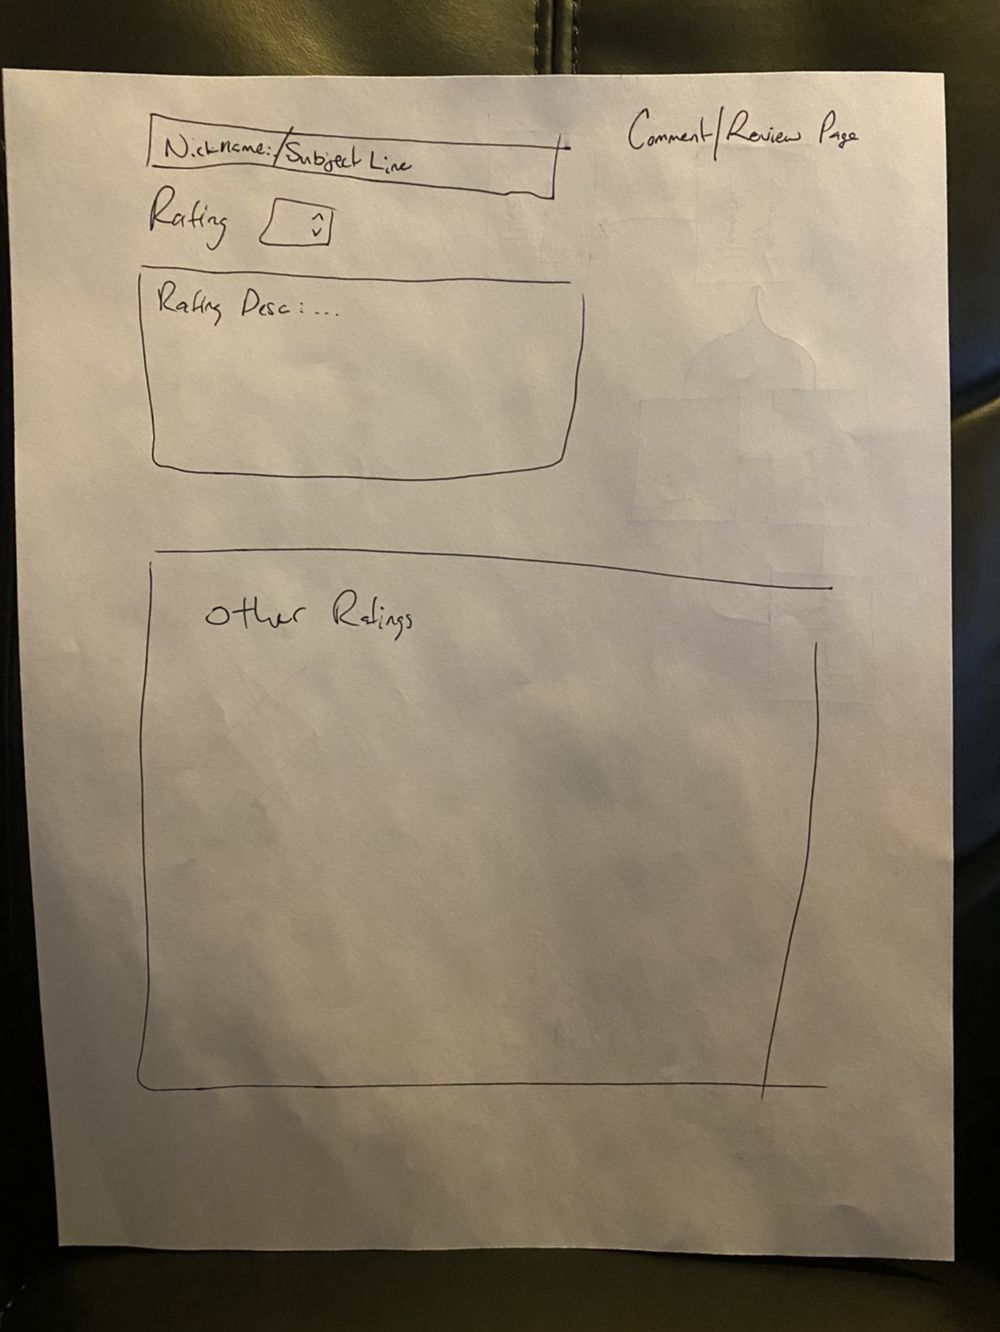 Comment/Review Page
Nickname:/Subject Line
Rating
Rating Desc:...
Other Ratings